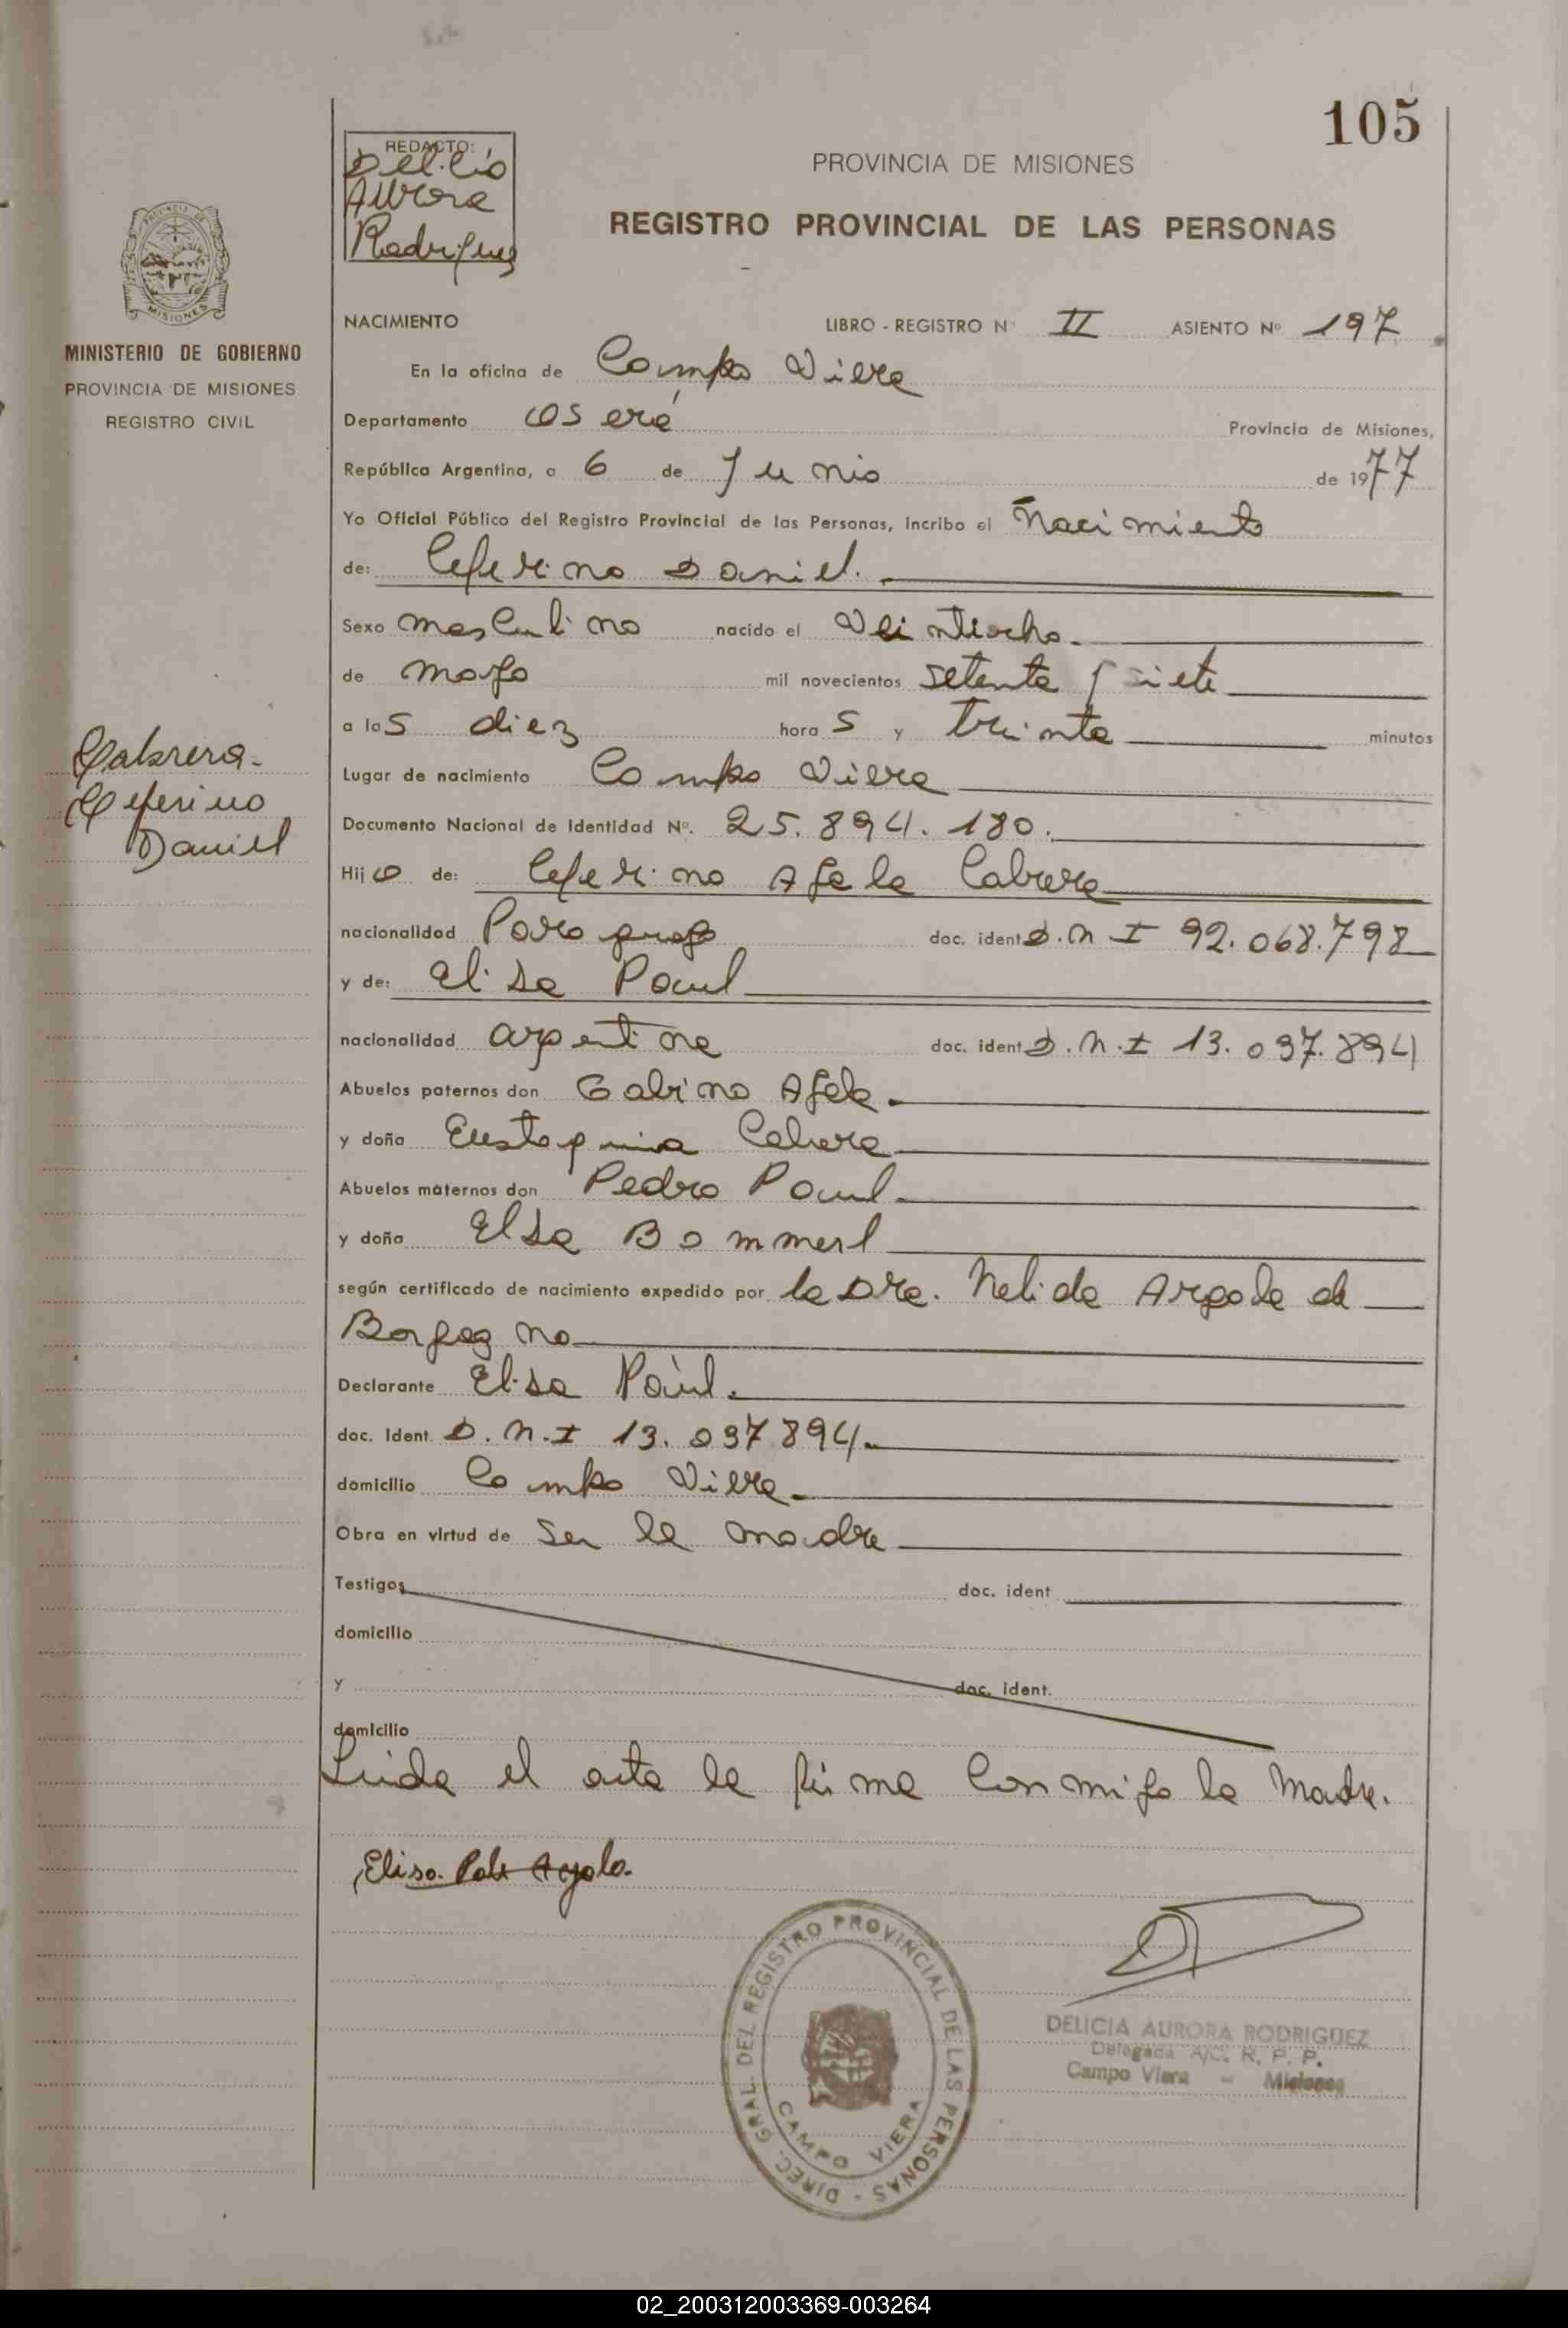 105
REDACTO:
Delicio
Aurora
Rodriguez
PROVINCIA DE MISIONES
REGISTRO PROVINCIAL DE LAS PERSONAS
MISIONES
MINISTERIO DE GOBIERNO
PROVINCIA DE MISIONES
REGISTRO CIVIL
NACIMIENTO LIBRO - REGISTRO Nº II ASIENTO Nº 197
En la oficina de Campo Viera
Departamento Provincia de Misiones,
República Argentina, a 6 de Junio de 1977
Yo Oficial Público del Registro Provincial de las Personas, Incribo el Nacimiento
de: Ceferino Daniel.
Sexo masculino nacido el Veintiocho.
de mayo mil novecientos setenta y siete
a los diez horas y treinta minutos
Cabrera-
Ceferino
Daniel
Lugar de nacimiento Campo Viera
Documento Nacional de Identidad Nº. 25.894.180.
Hijo de: Ceferino Ayala Cabrera
nacionalidad Paraguayo doc. ident D.N.I 92.068.798
y de: Elisa Paul
nacionalidad argentina doc. ident D.N.I 13.037.894
Abuelos paternos don Gabino Ayala
y doña Eustaquia Cabrera
Abuelos maternos don Pedro Paul
y doña Elsa Bommerl
según certificado de nacimiento expedido por la Dra. Nelida Argade de
Borgogno
Declarante Elisa Paúl.
doc. Ident. D.N.I 13.037894.
domicilio Campo Viera
Obra en virtud de ser la madre
Testigos doc. ident
domicilio
y doc. ident.
domicilio
Leida el acta la firma conmigo la Madre.
Elisa Ayala.
DIREC. GRAL. DEL REGISTRO PROVINCIAL DE LAS PERSONAS - CAMPO VIERA
DELICIA AURORA RODRIGUEZ
Delegada A/C. R. P. P.
Campo Viera - Misiones
02_200312003369-003264